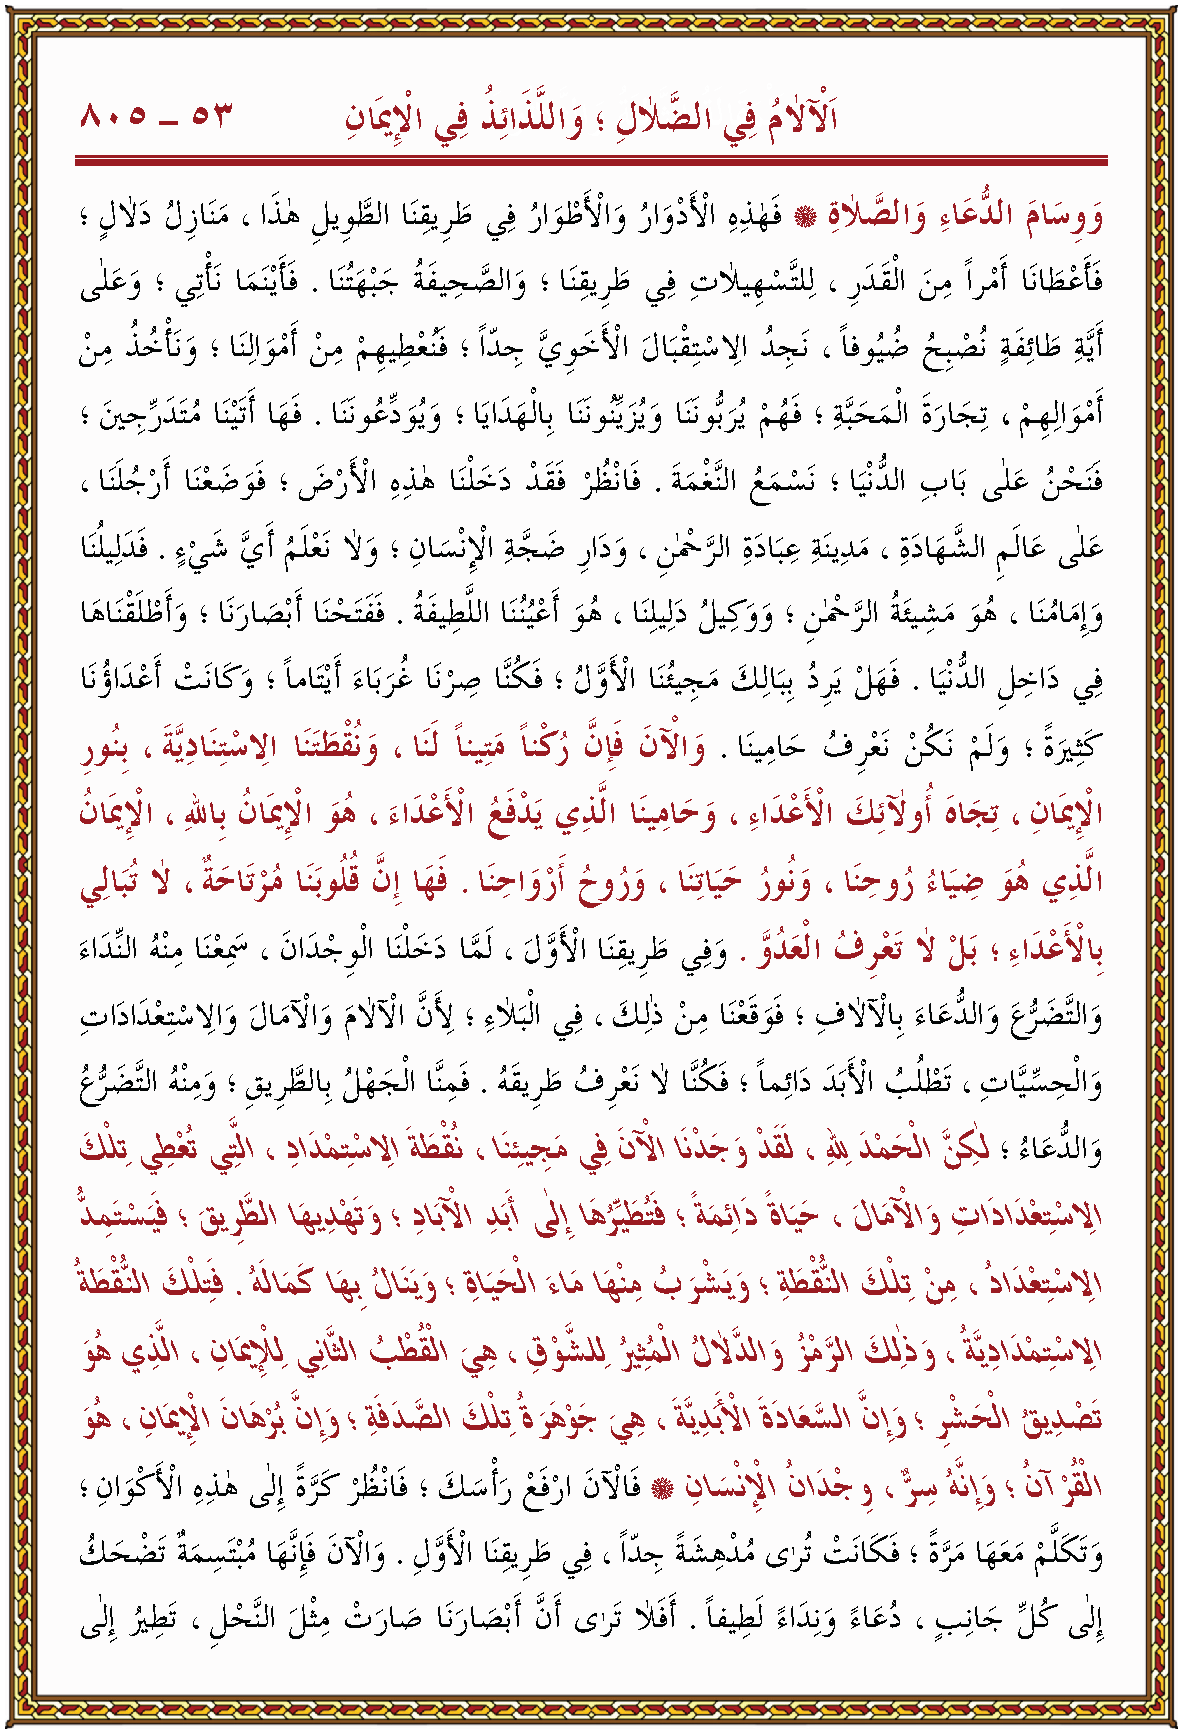 اَلْآلَامُ فِي الضَّلَالِ ؛ وَاللَّذَائِذُ فِي الْإِيمَانِ ٥٣ ـ ٨٠٥
وَوِسَامَ الدُّعَاءِ وَالصَّلَاةِ ۞ فَهٰذِهِ الْأَدْوَارُ وَالْأَطْوَارُ فِي طَرِيقِنَا الطَّوِيلِ هٰذَا ، مَنَازِلُ دَلَالٍ ؛
فَأَعْطَانَا أَمْراً مِنَ الْقَدَرِ ، لِلتَّسْهِيلَاتِ فِي طَرِيقِنَا ؛ وَالصَّحِيفَةُ جَبْهَتُنَا . فَأَيْنَمَا نَأْتِي ؛ وَعَلٰى
أَيَّةِ طَائِفَةٍ نُصْبِحُ ضُيُوفاً ، نَجِدُ الِاسْتِقْبَالَ الْأَخَوِيَّ جِدّاً ؛ فَنُعْطِيهِمْ مِنْ أَمْوَالِنَا ؛ وَنَأْخُذُ مِنْ
أَمْوَالِهِمْ ، تِجَارَةَ الْمَحَبَّةِ ؛ فَهُمْ يُرَبُّونَنَا وَيُزَيِّنُونَنَا بِالْهَدَايَا ؛ وَيُوَدِّعُونَنَا . فَهَا أَتَيْنَا مُتَدَرِّجِينَ ؛
فَنَحْنُ عَلٰى بَابِ الدُّنْيَا ؛ نَسْمَعُ النَّغْمَةَ . فَانْظُرْ فَقَدْ دَخَلْنَا هٰذِهِ الْأَرْضَ ؛ فَوَضَعْنَا أَرْجُلَنَا ،
عَلٰى عَالَمِ الشَّهَادَةِ ، مَدِينَةِ عِبَادَةِ الرَّحْمٰنِ ، وَدَارِ ضَجَّةِ الْإِنْسَانِ ؛ وَلَا نَعْلَمُ أَيَّ شَيْءٍ . فَدَلِيلُنَا
وَإِمَامُنَا ، هُوَ مَشِيئَةُ الرَّحْمٰنِ ؛ وَوَكِيلُ دَلِيلِنَا ، هُوَ أَعْيُنُنَا اللَّطِيفَةُ . فَفَتَحْنَا أَبْصَارَنَا ؛ وَأَطْلَقْنَاهَا
فِي دَاخِلِ الدُّنْيَا . فَهَلْ يَرِدُ بِبَالِكَ مَجِيئُنَا الْأَوَّلُ ؛ فَكُنَّا صِرْنَا غُرَبَاءَ أَيْتَاماً ؛ وَكَانَتْ أَعْدَاؤُنَا
كَثِيرَةً ؛ وَلَمْ نَكُنْ نَعْرِفُ حَامِيَنَا . وَالْآنَ فَإِنَّ رُكْناً مَتِيناً لَنَا ، وَنُقْطَتَنَا الِاسْتِنَادِيَّةَ ، بِنُورِ
الْإِيمَانِ ، تِجَاهَ أُولٰئِكَ الْأَعْدَاءِ ، وَحَامِيَنَا الَّذِي يَدْفَعُ الْأَعْدَاءَ ، هُوَ الْإِيمَانُ بِاللهِ ، الْإِيمَانُ
الَّذِي هُوَ ضِيَاءُ رُوحِنَا ، وَنُورُ حَيَاتِنَا ، وَرُوحُ أَرْوَاحِنَا . فَهَا إِنَّ قُلُوبَنَا مُرْتَاحَةٌ ، لَا تُبَالِي
بِالْأَعْدَاءِ ؛ بَلْ لَا تَعْرِفُ الْعَدُوَّ . وَفِي طَرِيقِنَا الْأَوَّلَ ، لَمَّا دَخَلْنَا الْوِجْدَانَ ، سَمِعْنَا مِنْهُ النِّدَاءَ
وَالتَّضَرُّعَ وَالدُّعَاءَ بِالْآلَافِ ؛ فَوَقَعْنَا مِنْ ذٰلِكَ ، فِي الْبَلَاءِ ؛ لِأَنَّ الْآلَامَ وَالْآمَالَ وَالِاسْتِعْدَادَاتِ
وَالْحِسِّيَّاتِ ، تَطْلُبُ الْأَبَدَ دَائِماً ؛ فَكُنَّا لَا نَعْرِفُ طَرِيقَهُ . فَمِنَّا الْجَهْلُ بِالطَّرِيقِ ؛ وَمِنْهُ التَّضَرُّعُ
وَالدُّعَاءُ ؛ لٰكِنَّ الْحَمْدَ لِلهِ ، لَقَدْ وَجَدْنَا الْآنَ فِي مَجِيئِنَا ، نُقْطَةَ الِاسْتِمْدَادِ ، الَّتِي تُعْطِي تِلْكَ
الِاسْتِعْدَادَاتِ وَالْآمَالَ ، حَيَاةً دَائِمَةً ؛ فَتُطَيِّرُهَا إِلٰى أَبَدِ الْآبَادِ ؛ وَتَهْدِيهَا الطَّرِيقَ ؛ فَيَسْتَمِدُّ
الِاسْتِعْدَادُ ، مِنْ تِلْكَ النُّقْطَةِ ؛ وَيَشْرَبُ مِنْهَا مَاءَ الْحَيَاةِ ؛ وَيَنَالُ بِهَا كَمَالَهُ . فَتِلْكَ النُّقْطَةُ
الِاسْتِمْدَادِيَّةُ ، وَذٰلِكَ الرَّمْزُ وَالدَّلَالُ الْمُثِيرُ لِلشَّوْقِ ، هِيَ الْقُطْبُ الثَّانِي لِلْإِيمَانِ ، الَّذِي هُوَ
تَصْدِيقُ الْحَشْرِ ؛ وَإِنَّ السَّعَادَةَ الْأَبَدِيَّةَ ، هِيَ جَوْهَرَةُ تِلْكَ الصَّدَفَةِ ؛ وَإِنَّ بُرْهَانَ الْإِيمَانِ ، هُوَ
الْقُرْآنُ ؛ وَإِنَّهُ سِرٌّ ، وِجْدَانُ الْإِنْسَانِ ۞ فَالْآنَ ارْفَعْ رَأْسَكَ ؛ فَانْظُرْ كَرَّةً إِلٰى هٰذِهِ الْأَكْوَانِ ؛
وَتَكَلَّمْ مَعَهَا مَرَّةً ؛ فَكَانَتْ تُرٰى مُدْهِشَةً جِدّاً ، فِي طَرِيقِنَا الْأَوَّلِ . وَالْآنَ فَإِنَّهَا مُبْتَسِمَةٌ تَضْحَكُ
إِلٰى كُلِّ جَانِبٍ ، دُعَاءً وَنِدَاءً لَطِيفاً . أَفَلَا تَرٰى أَنَّ أَبْصَارَنَا صَارَتْ مِثْلَ النَّحْلِ ، تَطِيرُ إِلٰى